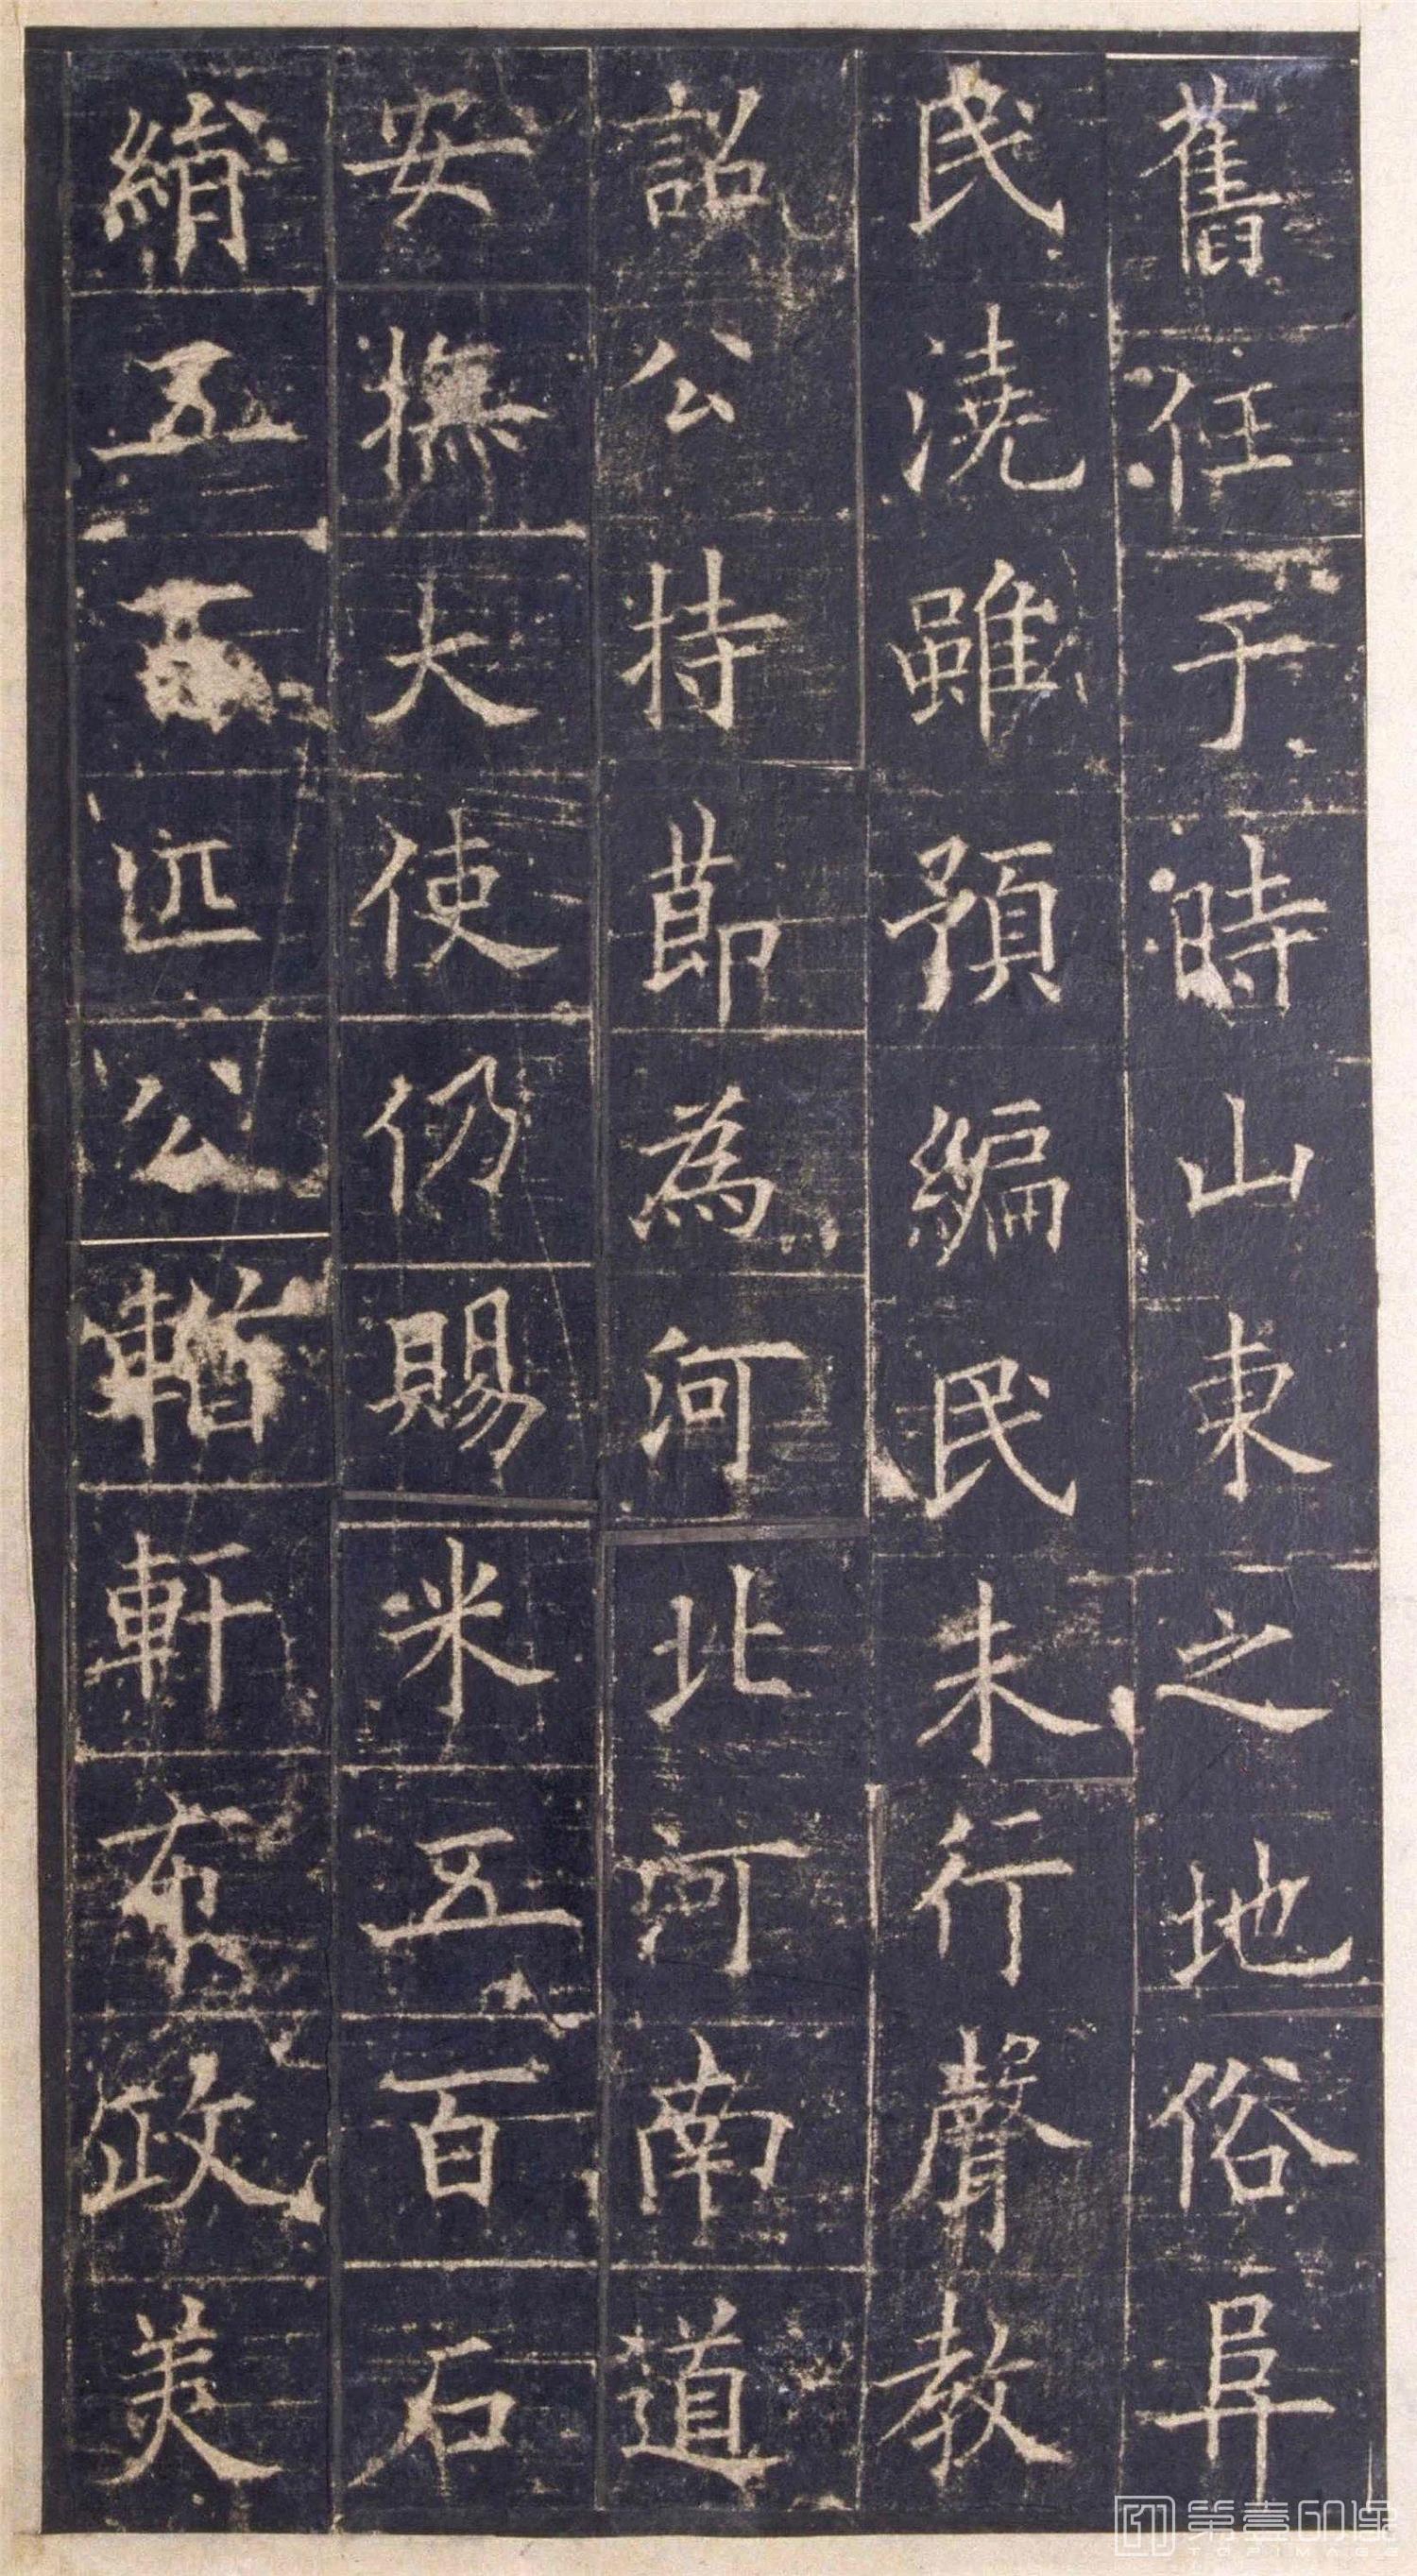 舊任于時山東之地俗阜
民澆雖預編民未行聲教
詔公持節為河北河南道
安撫大使仍賜米五百石
絹五百匹公輶軒布政美
第壹印像
TOPIMAGE